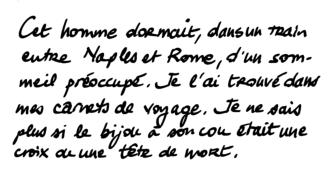 Cet homme dormait, dans un train
entre Naples et Rome, d'un som-
meil préoccupé. Je l'ai trouvé dans
mes carnets de voyage. Je ne sais
plus si le bijou à son cou était une
croix ou une tête de mort.